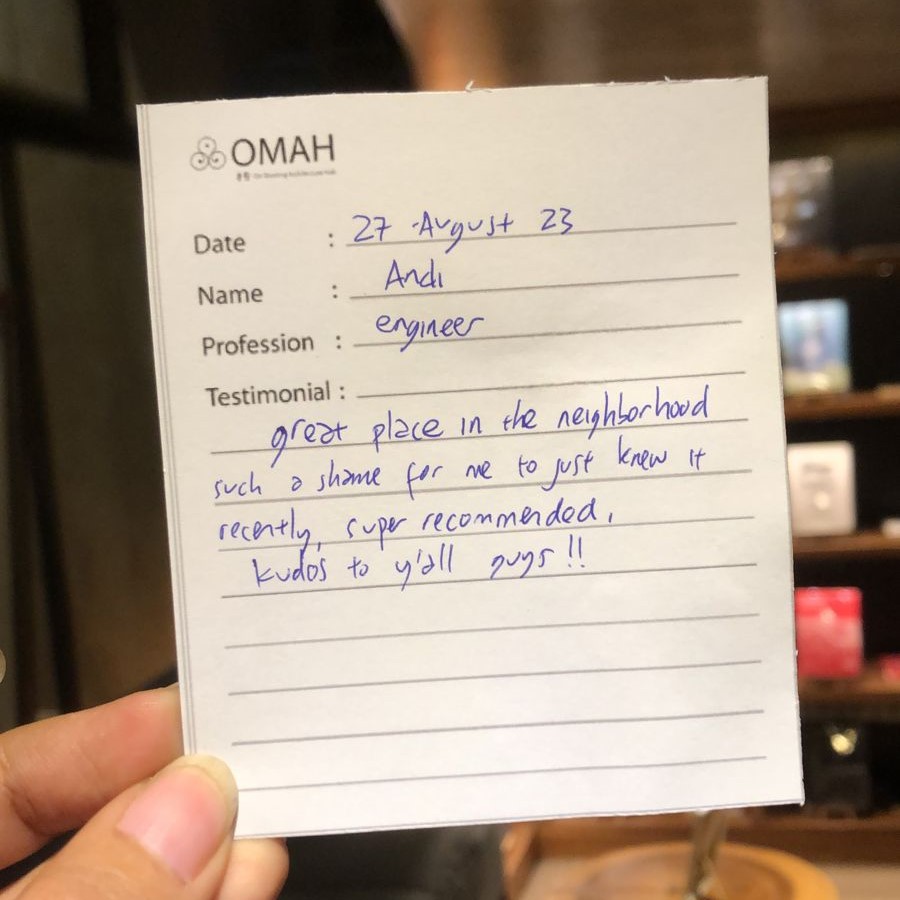 OMAH
Date : 27 August 23
Name : Andi
Profession : engineer
Testimonial :
great place in the neighborhood
such a shame for me to just knew it
recently, super recommended,
kudos to y'all guys!!